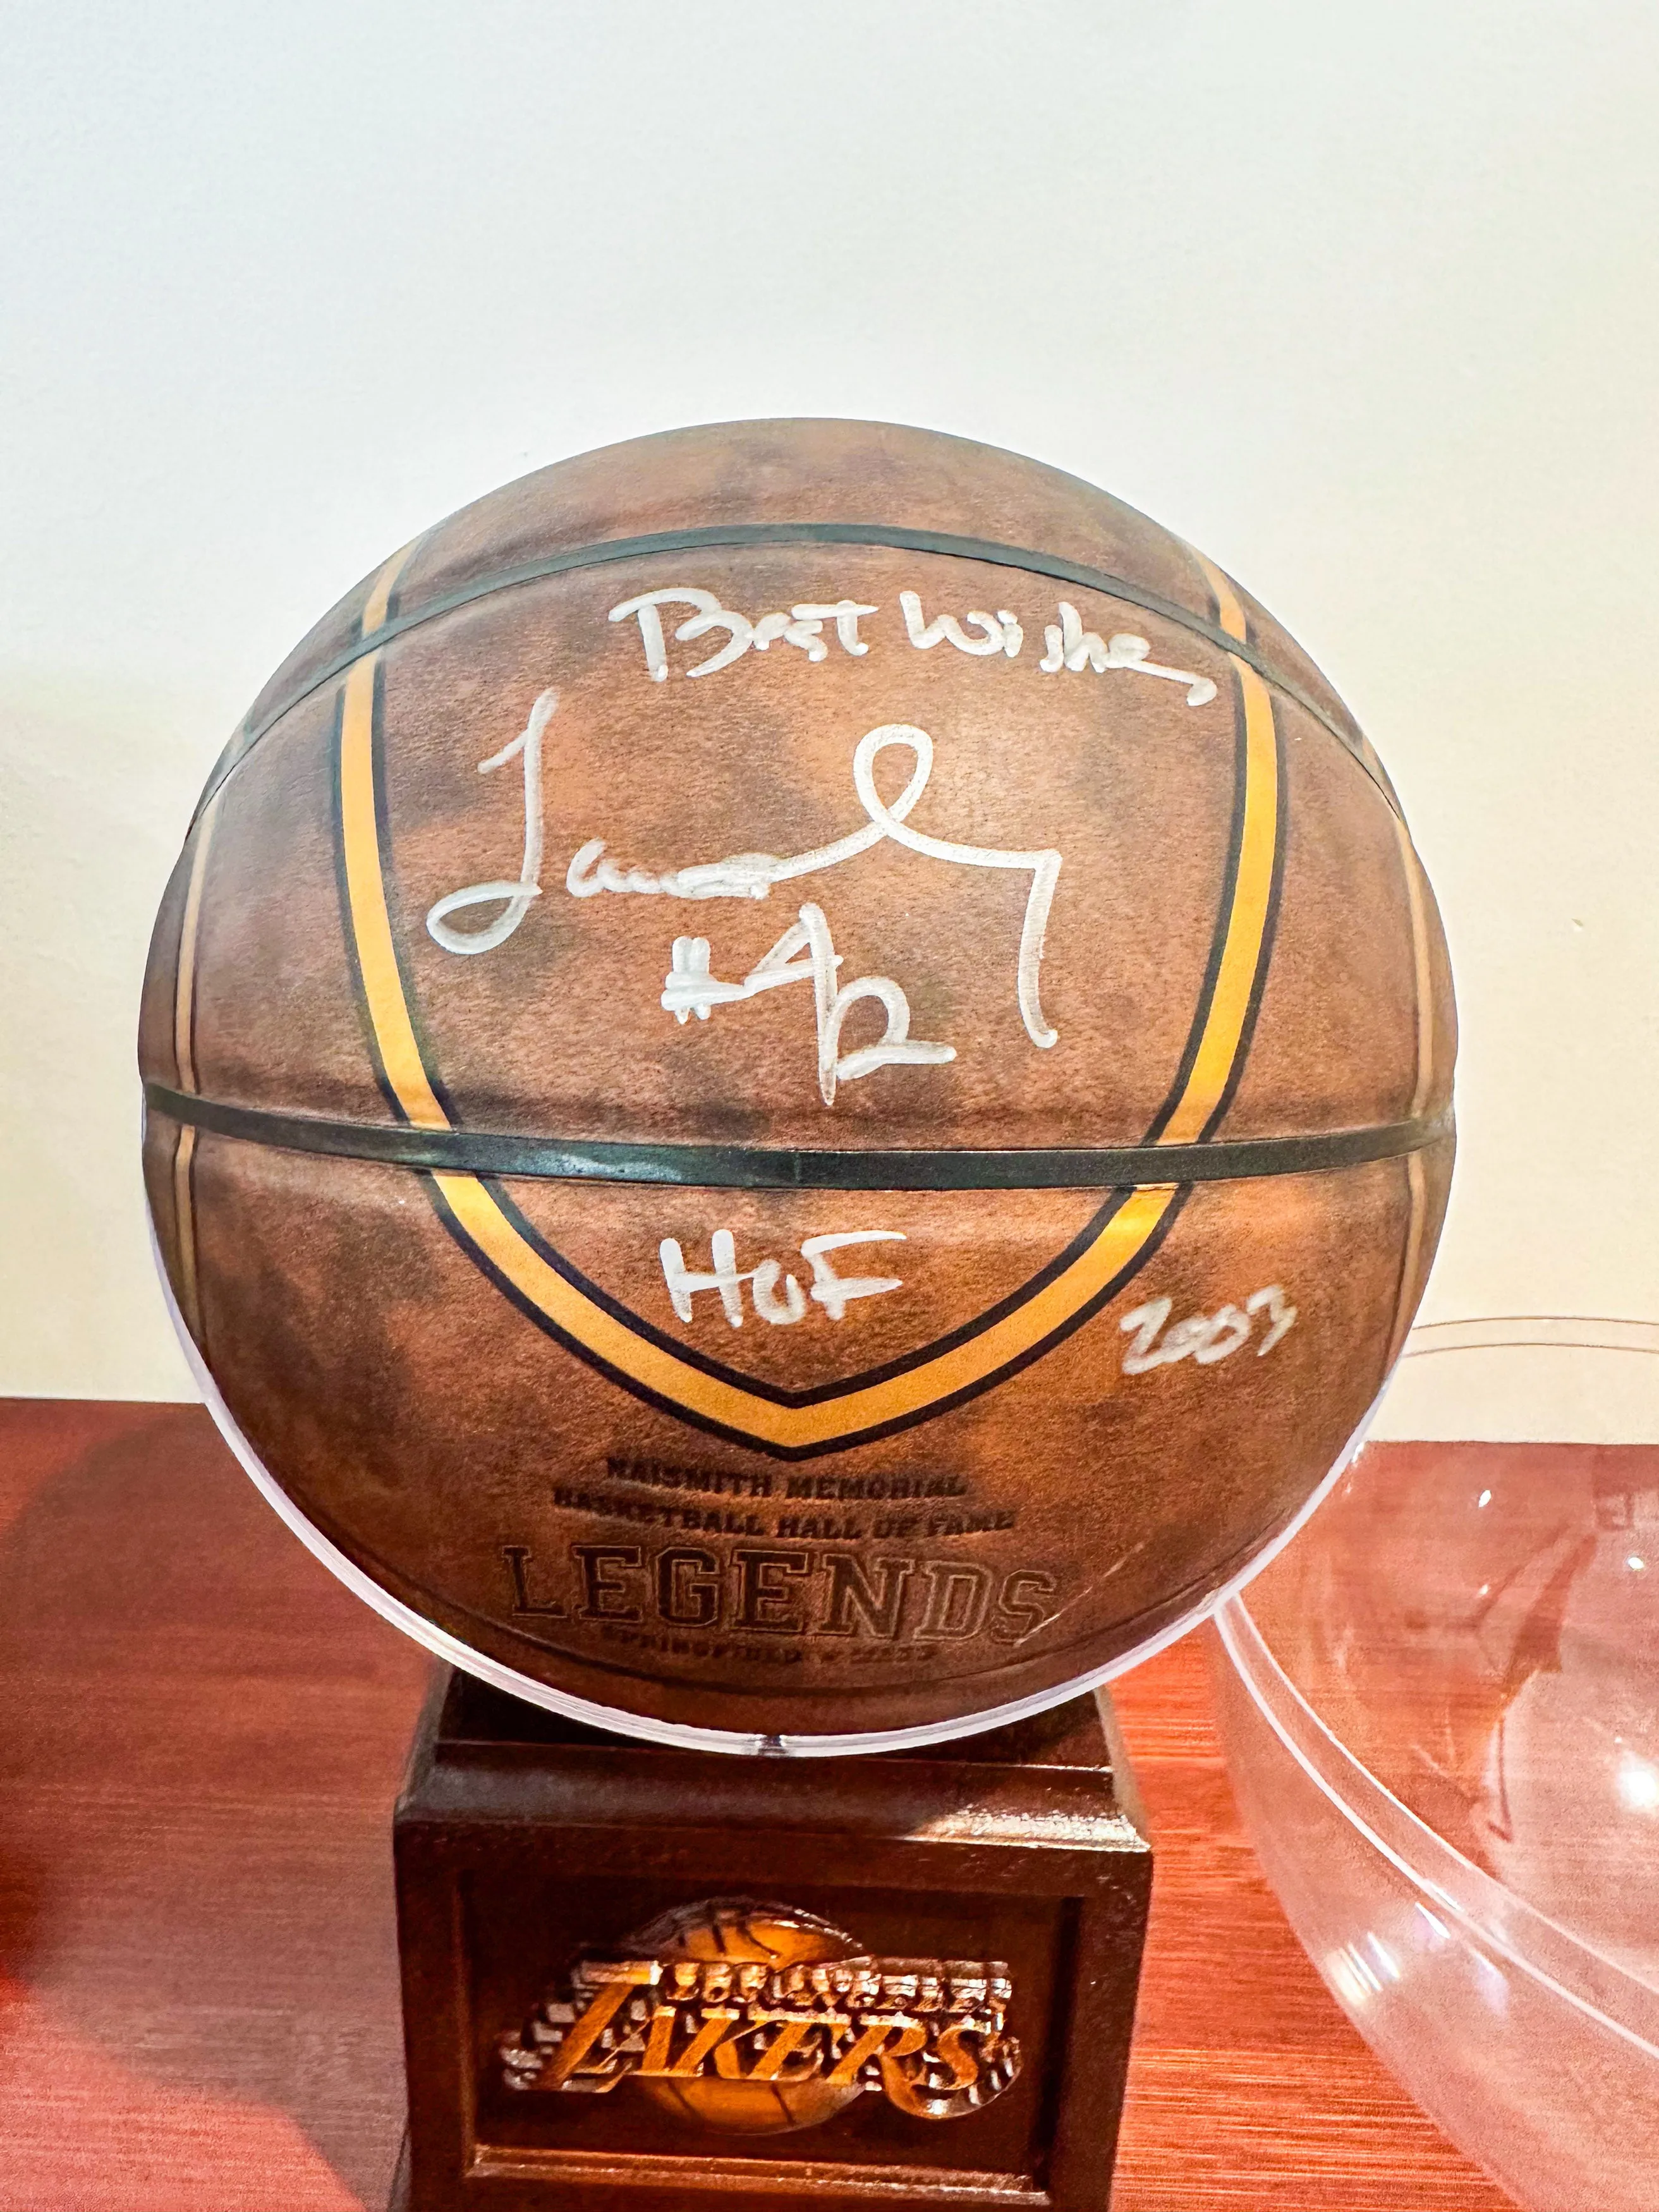 Best Wishes
James Worthy
#42
HOF
2003
NAISMITH MEMORIAL
BASKETBALL HALL OF FAME
LEGENDS
LOS ANGELES
LAKERS